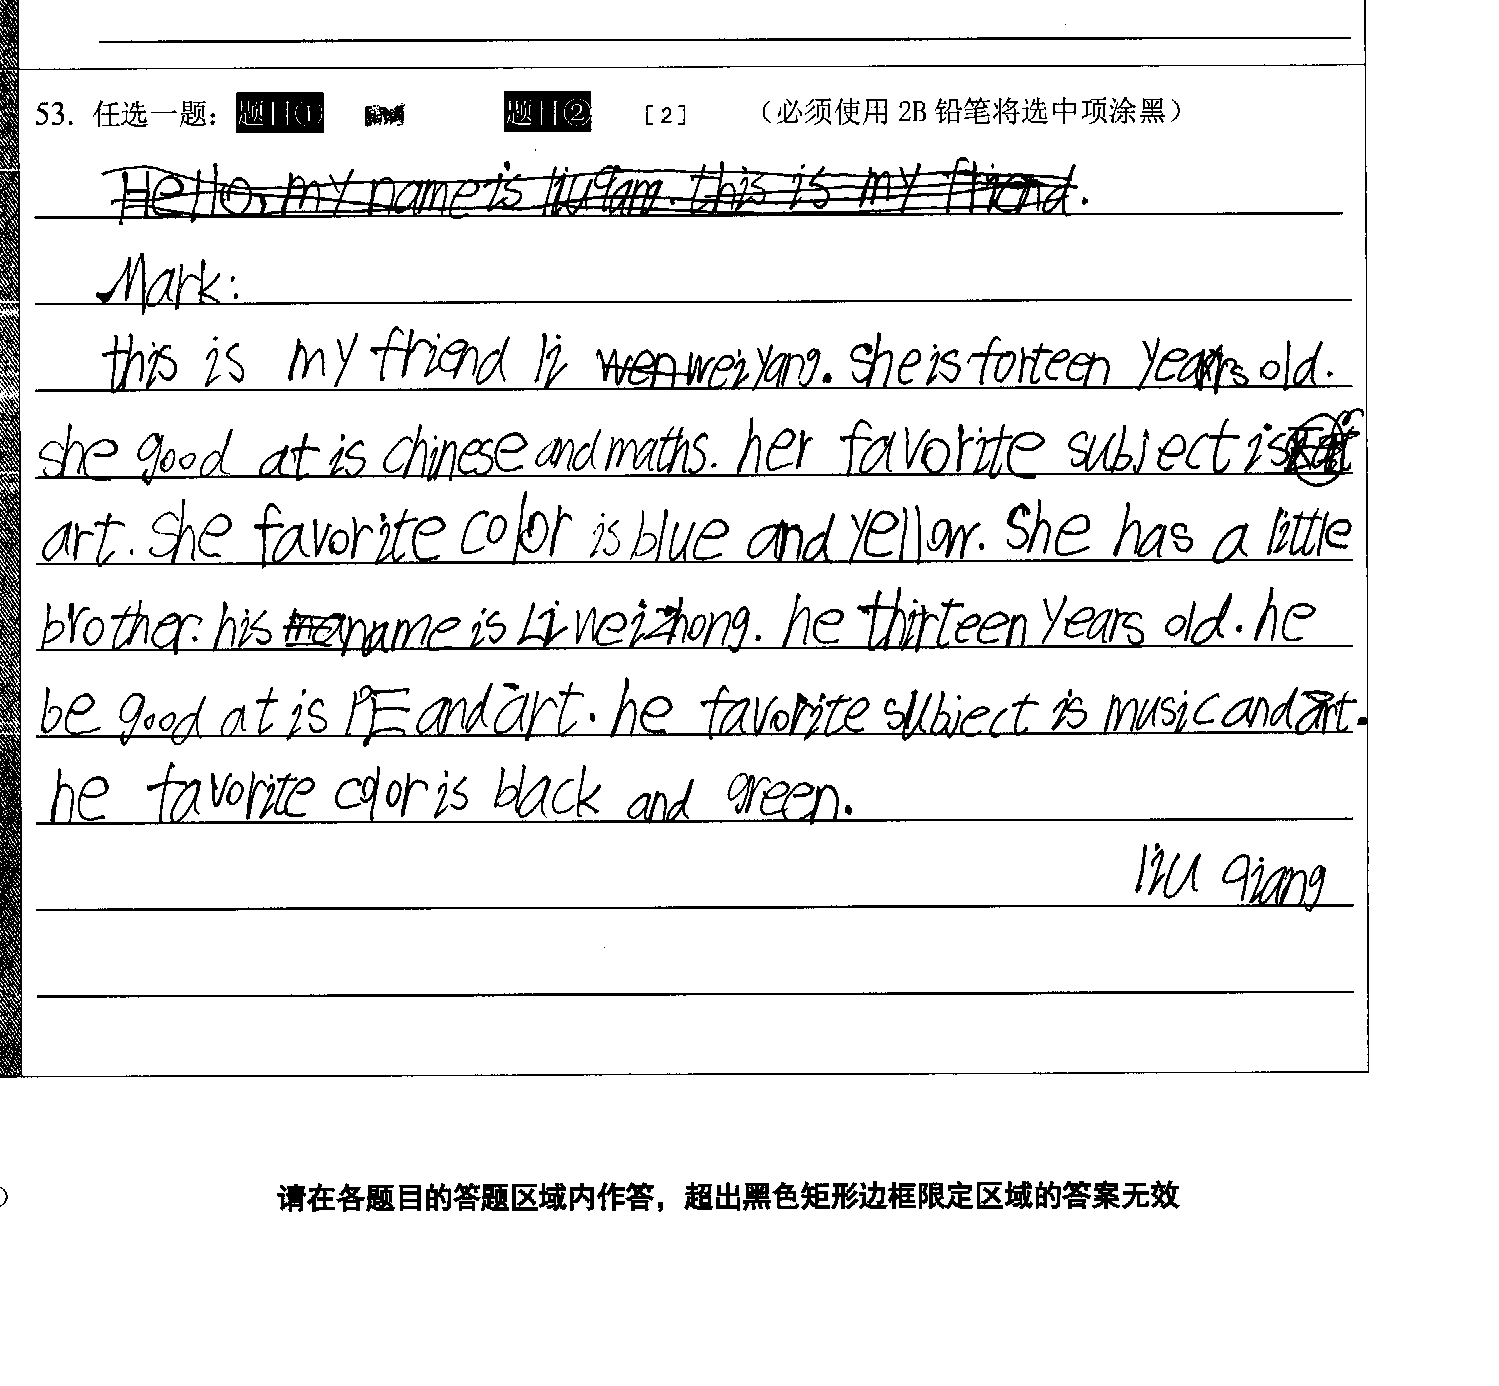 53. 任选一题: 题目① 题目② [2] (必须使用 2B 铅笔将选中项涂黑)
Hello, my name is liuqian. this is my friend.
Mark:
this is my friend li wen weiyang. She is forteen years old.
she good at is chinese and maths. her favorite subject is
art. She favorite color is blue and yellow. She has a little
brother. his name is Li weizhong. he thirteen years old. he
be good at is PE and art. he favorite subject is music and art.
he favorite color is black and green.
liu qiang
请在各题目的答题区域内作答，超出黑色矩形边框限定区域的答案无效